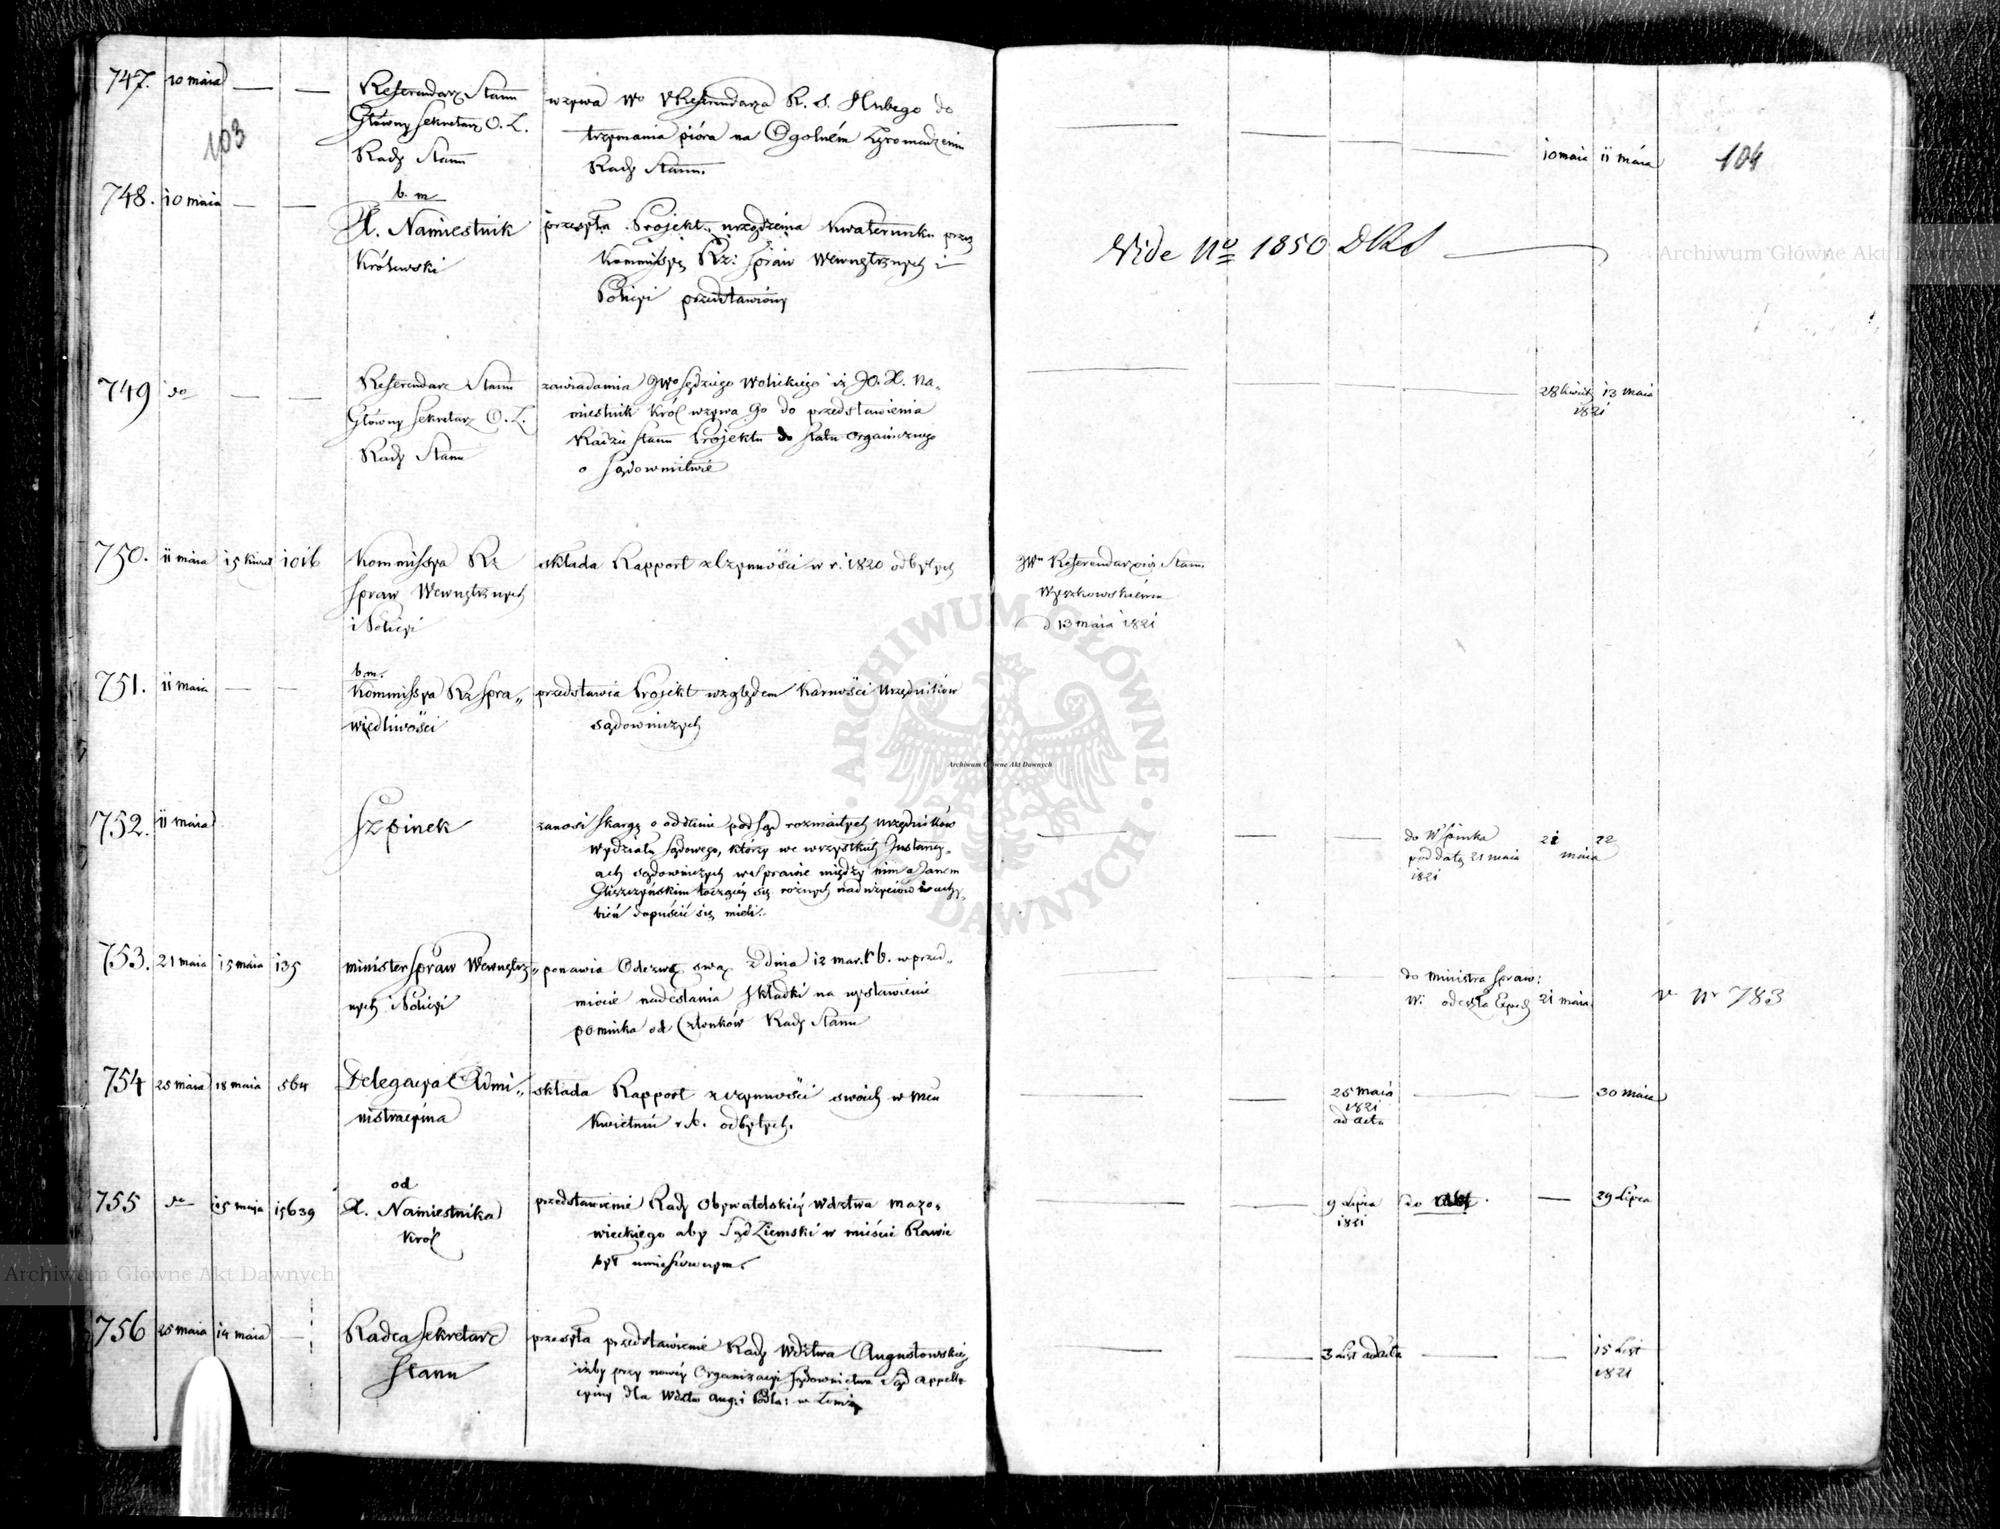 747. 10 maia — — Referendarz Stanu wzywa Wo Referendarza R. S. Hubego do
Główny Sekretarz O. Z. trzymania pióra na Ogolném Zgromadzeniu
Rady Stanu Rady Stanu.
10 maia 11 maia
103
104
748. 10 maia — — b. m
X. Namiestnik przesyła Projekt urządzenia Kwaterunku przez
Królewski Kommissyą Rz: Spraw Wewnętrznych i
Policyi przedstawiony
Vide No 1850 DRS
749 do — — Referendarz Stanu zawiadamia JWo Sędziego Wolickiego iż JO. X. Na-
Główny Sekretarz O. Z. miestnik Król wzywa Go do przedstawienia
Rady Stanu Radzie Stanu Projektu do Statu organicznego
o Sądownictwie
28 kwiet 13 maia
1821
750. 11 maia 15 kwiet 1016 Kommissya Rz składa Rapport z Czynności w r. 1820 odbytych
Spraw Wewnętrznych
i Policyi
JWu Referendarzowi Stanu
Wyszkowskiemu
d 13 maia 1821
751. 11 maia — — b. m.
Kommissya Rz Spra- przedstawia Projekt względem Karności Urzędników
wiedliwości sądowniczych
752. 11 maia Szpinek zanosi skargę o oddanie pod Sąd rozmaitych Urzędników
Wydziału Sądowego, którzy we wszystkich Instancy-
ach sądowniczych w sprawie między nim a Janem
Gliszczyńskim toczącéy się rożnych nadużyciów i uchy-
bień dopuścić się mieli.
do W Spinka 21 22
pod datą 21 maia maia
1821
753. 21 maia 15 maia 135 Minister Spraw Wewnętrz- ponawia Odezwę swą z dnia 12 mar. r b. w przed-
nych i Policyi miocie nadesłania składki na wystawienie
pomnika od Członków Rady Stanu
do Ministra Spraw:
W: odeszła Exped 21 maia
v Nr 783
754 25 maia 18 maia 564 Delegacya Admi- składa Rapport z czynności swoich w mcu
nistracyina Kwietniu r. b. odbytych.
25 maia
1821
ad acta
30 maia
755 do 15 maja 15639 od
X. Namiestnika przedstawienie Rady Obywatelskiéy Wdztwa Mazo-
Król wieckiego aby Sąd Ziemski w mieście Rawie
był umieszczonym.
9 Lipca do Akt. 29 Lipca
1821
756 25 maia 14 maia — Radca Sekretarz przesyła przedstawienie Rady Wdztwa Augustowskiéy
Stanu iżby przy nowéy Organizacyi Sądownictwa Sąd Appella-
cyiny dla Wdztw Aug: i Podla: w Łomży
3 List ad acta 15 List
1821
Archiwum Główne Akt Dawnych
ARCHIWUM GŁÓWNE AKT DAWNYCH
Archiwum Główne Akt Dawnych
Archiwum Główne Akt Dawnych